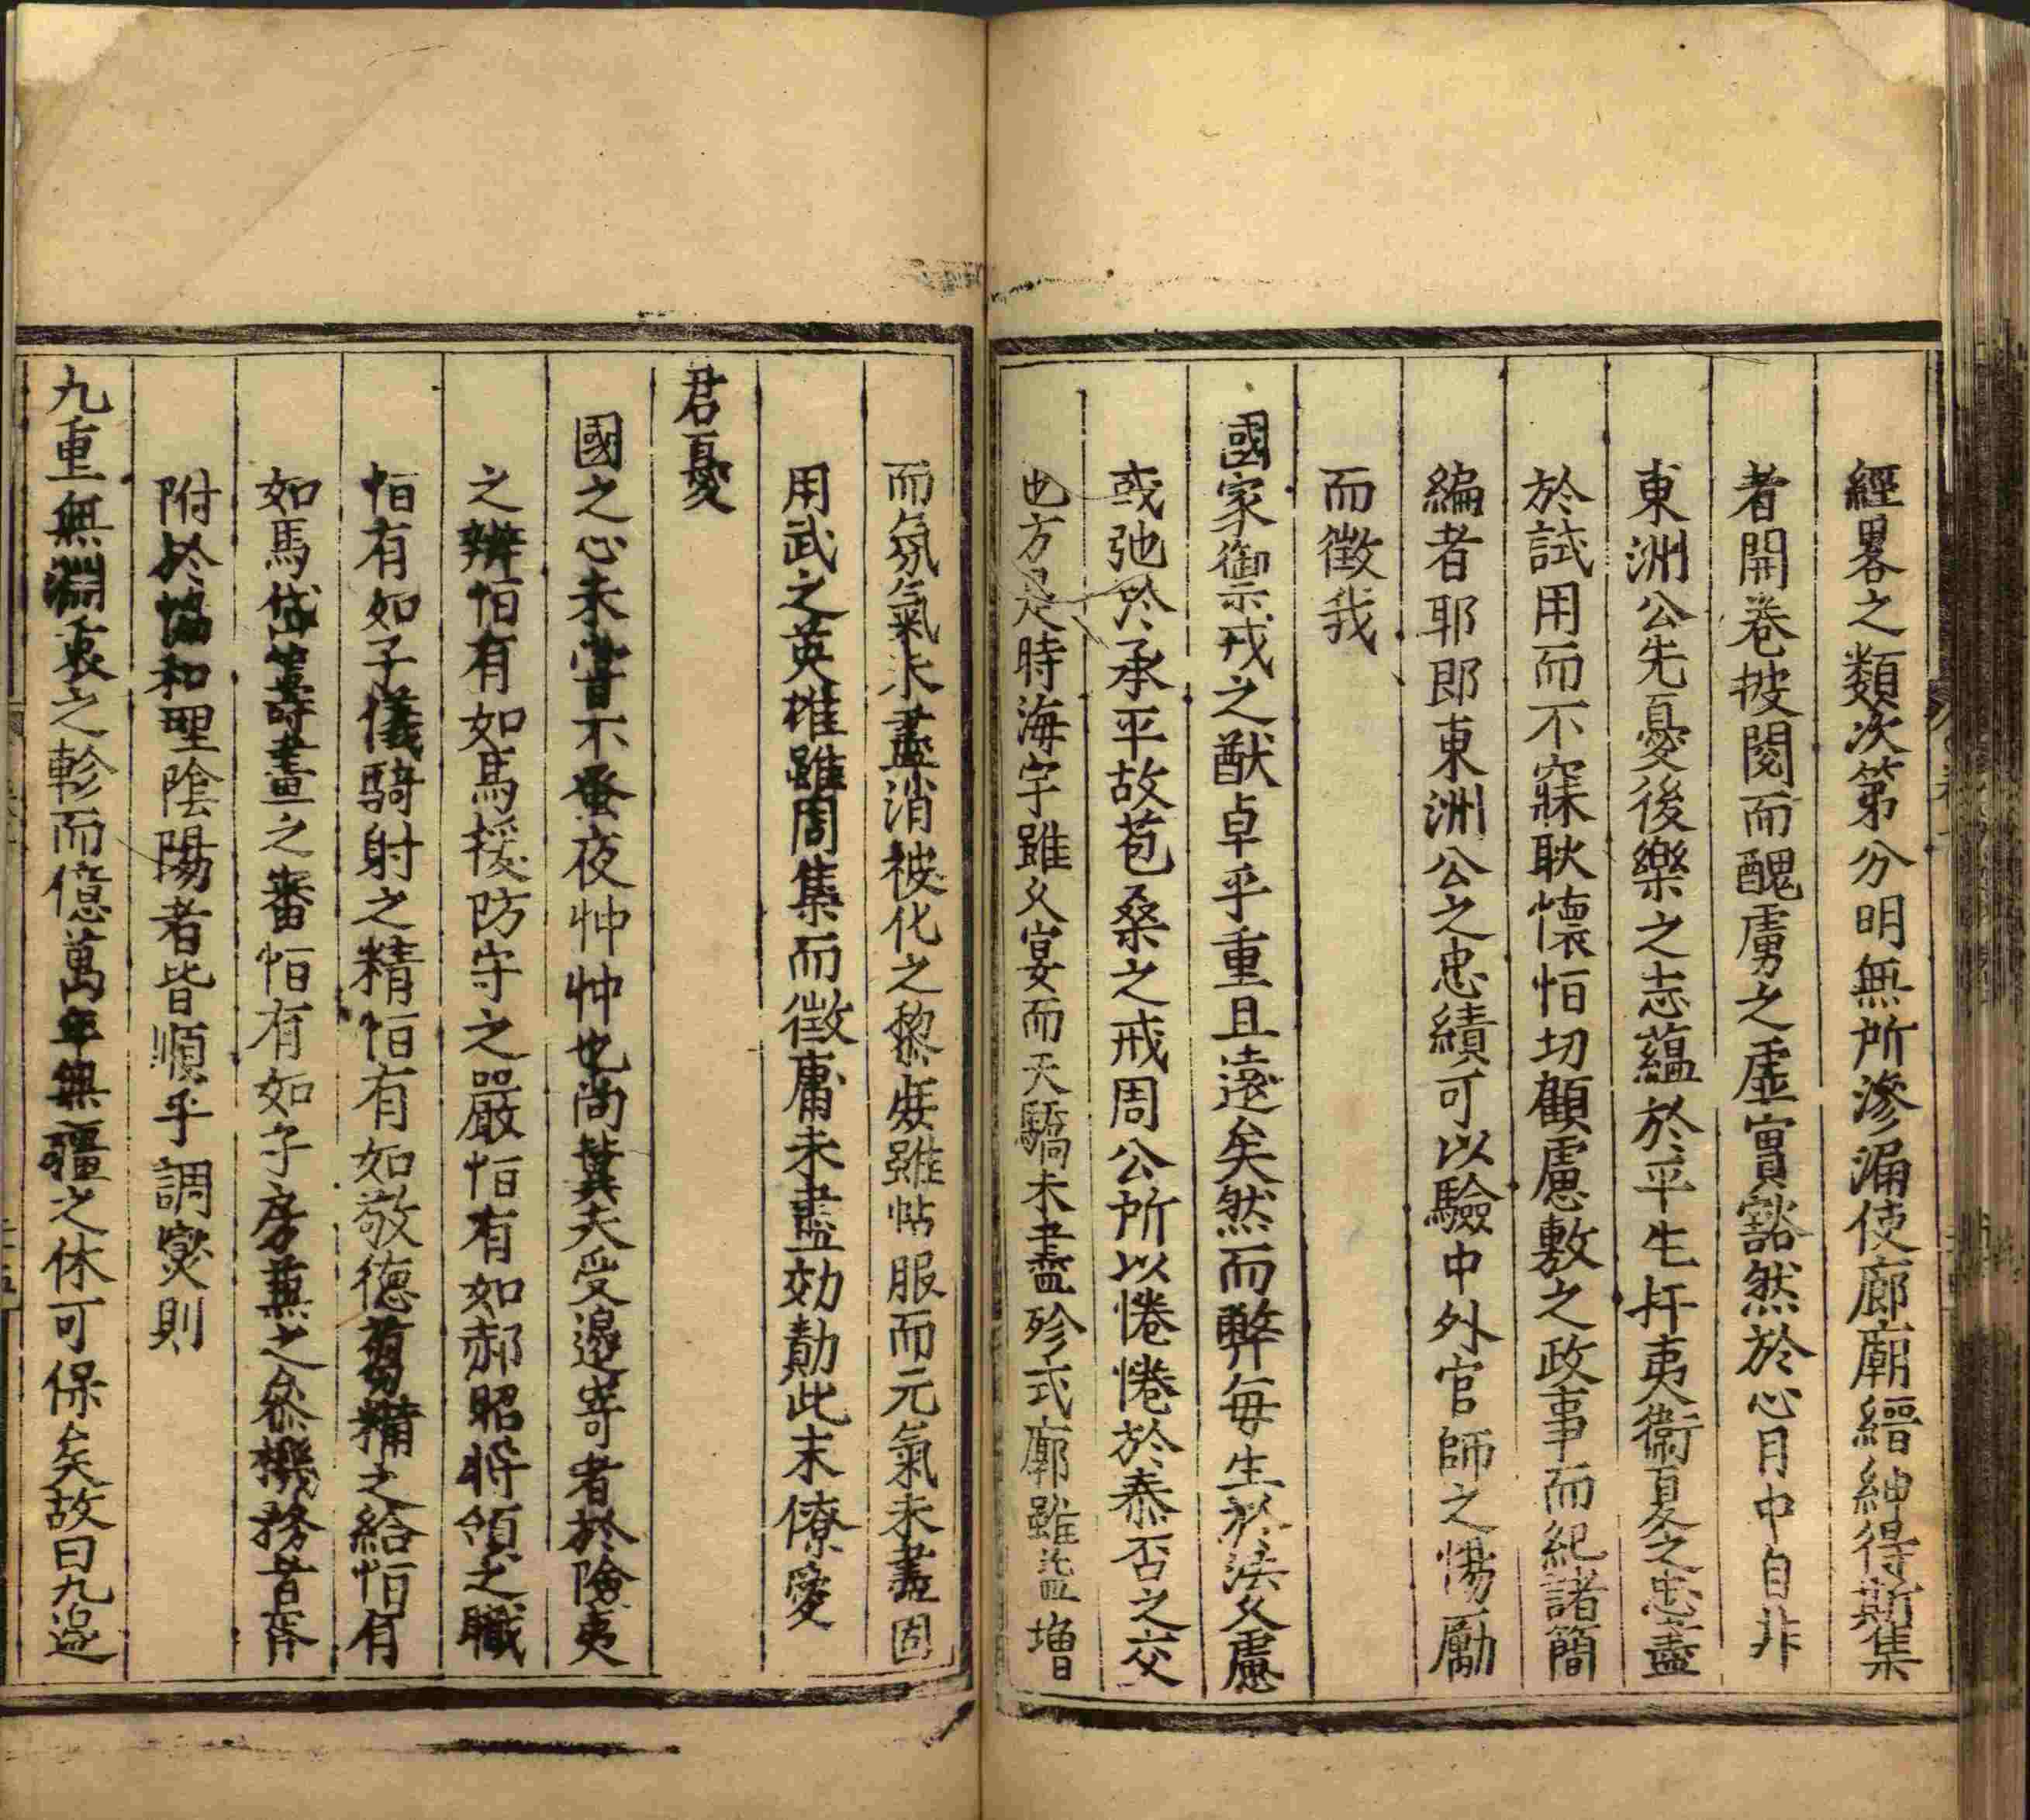 經畧之類次第分明無所滲漏使廊廟縉紳得斯集
者開卷披閱而醜虜之虛實豁然於心目中自非
東洲公先憂後樂之志蘊於平生扞夷衛夏之忠盡
於試用而不寐耿懷恒切顧慮敷之政事而紀諸簡
編者耶即東洲公之忠績可以驗中外官師之惕厲
而徵我
國家禦戎之猷卓乎重且遠矣然而弊每生於法久慮
或弛於承平故苞桑之戒周公所以惓惓於泰否之交
也方是時海宇雖乂宴而天驕未盡殄式廓雖益增
而氛氣未盡消被化之黎庶雖帖服而元氣未盡固
用武之英雄雖周集而徵庸未盡効勛此末僚愛
君憂
國之心未嘗不蚤夜忡忡也尚冀夫受邊寄者於險夷
之辨恒有如馬援防守之嚴恒有如郝昭將領之職
恒有如子儀騎射之精恒有如敬德芻糒之給恒有
如馬岱籌畫之審恒有如子房兼之叅機務者咨
附於恊和理陰陽者皆順乎調燮則
九重無淵衷之軫而億萬年無疆之休可保矣故曰九邊